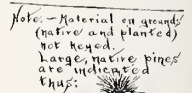 Note. - Material on grounds
(native and planted)
not keyed.
Large, native pines
are indicated
thus: